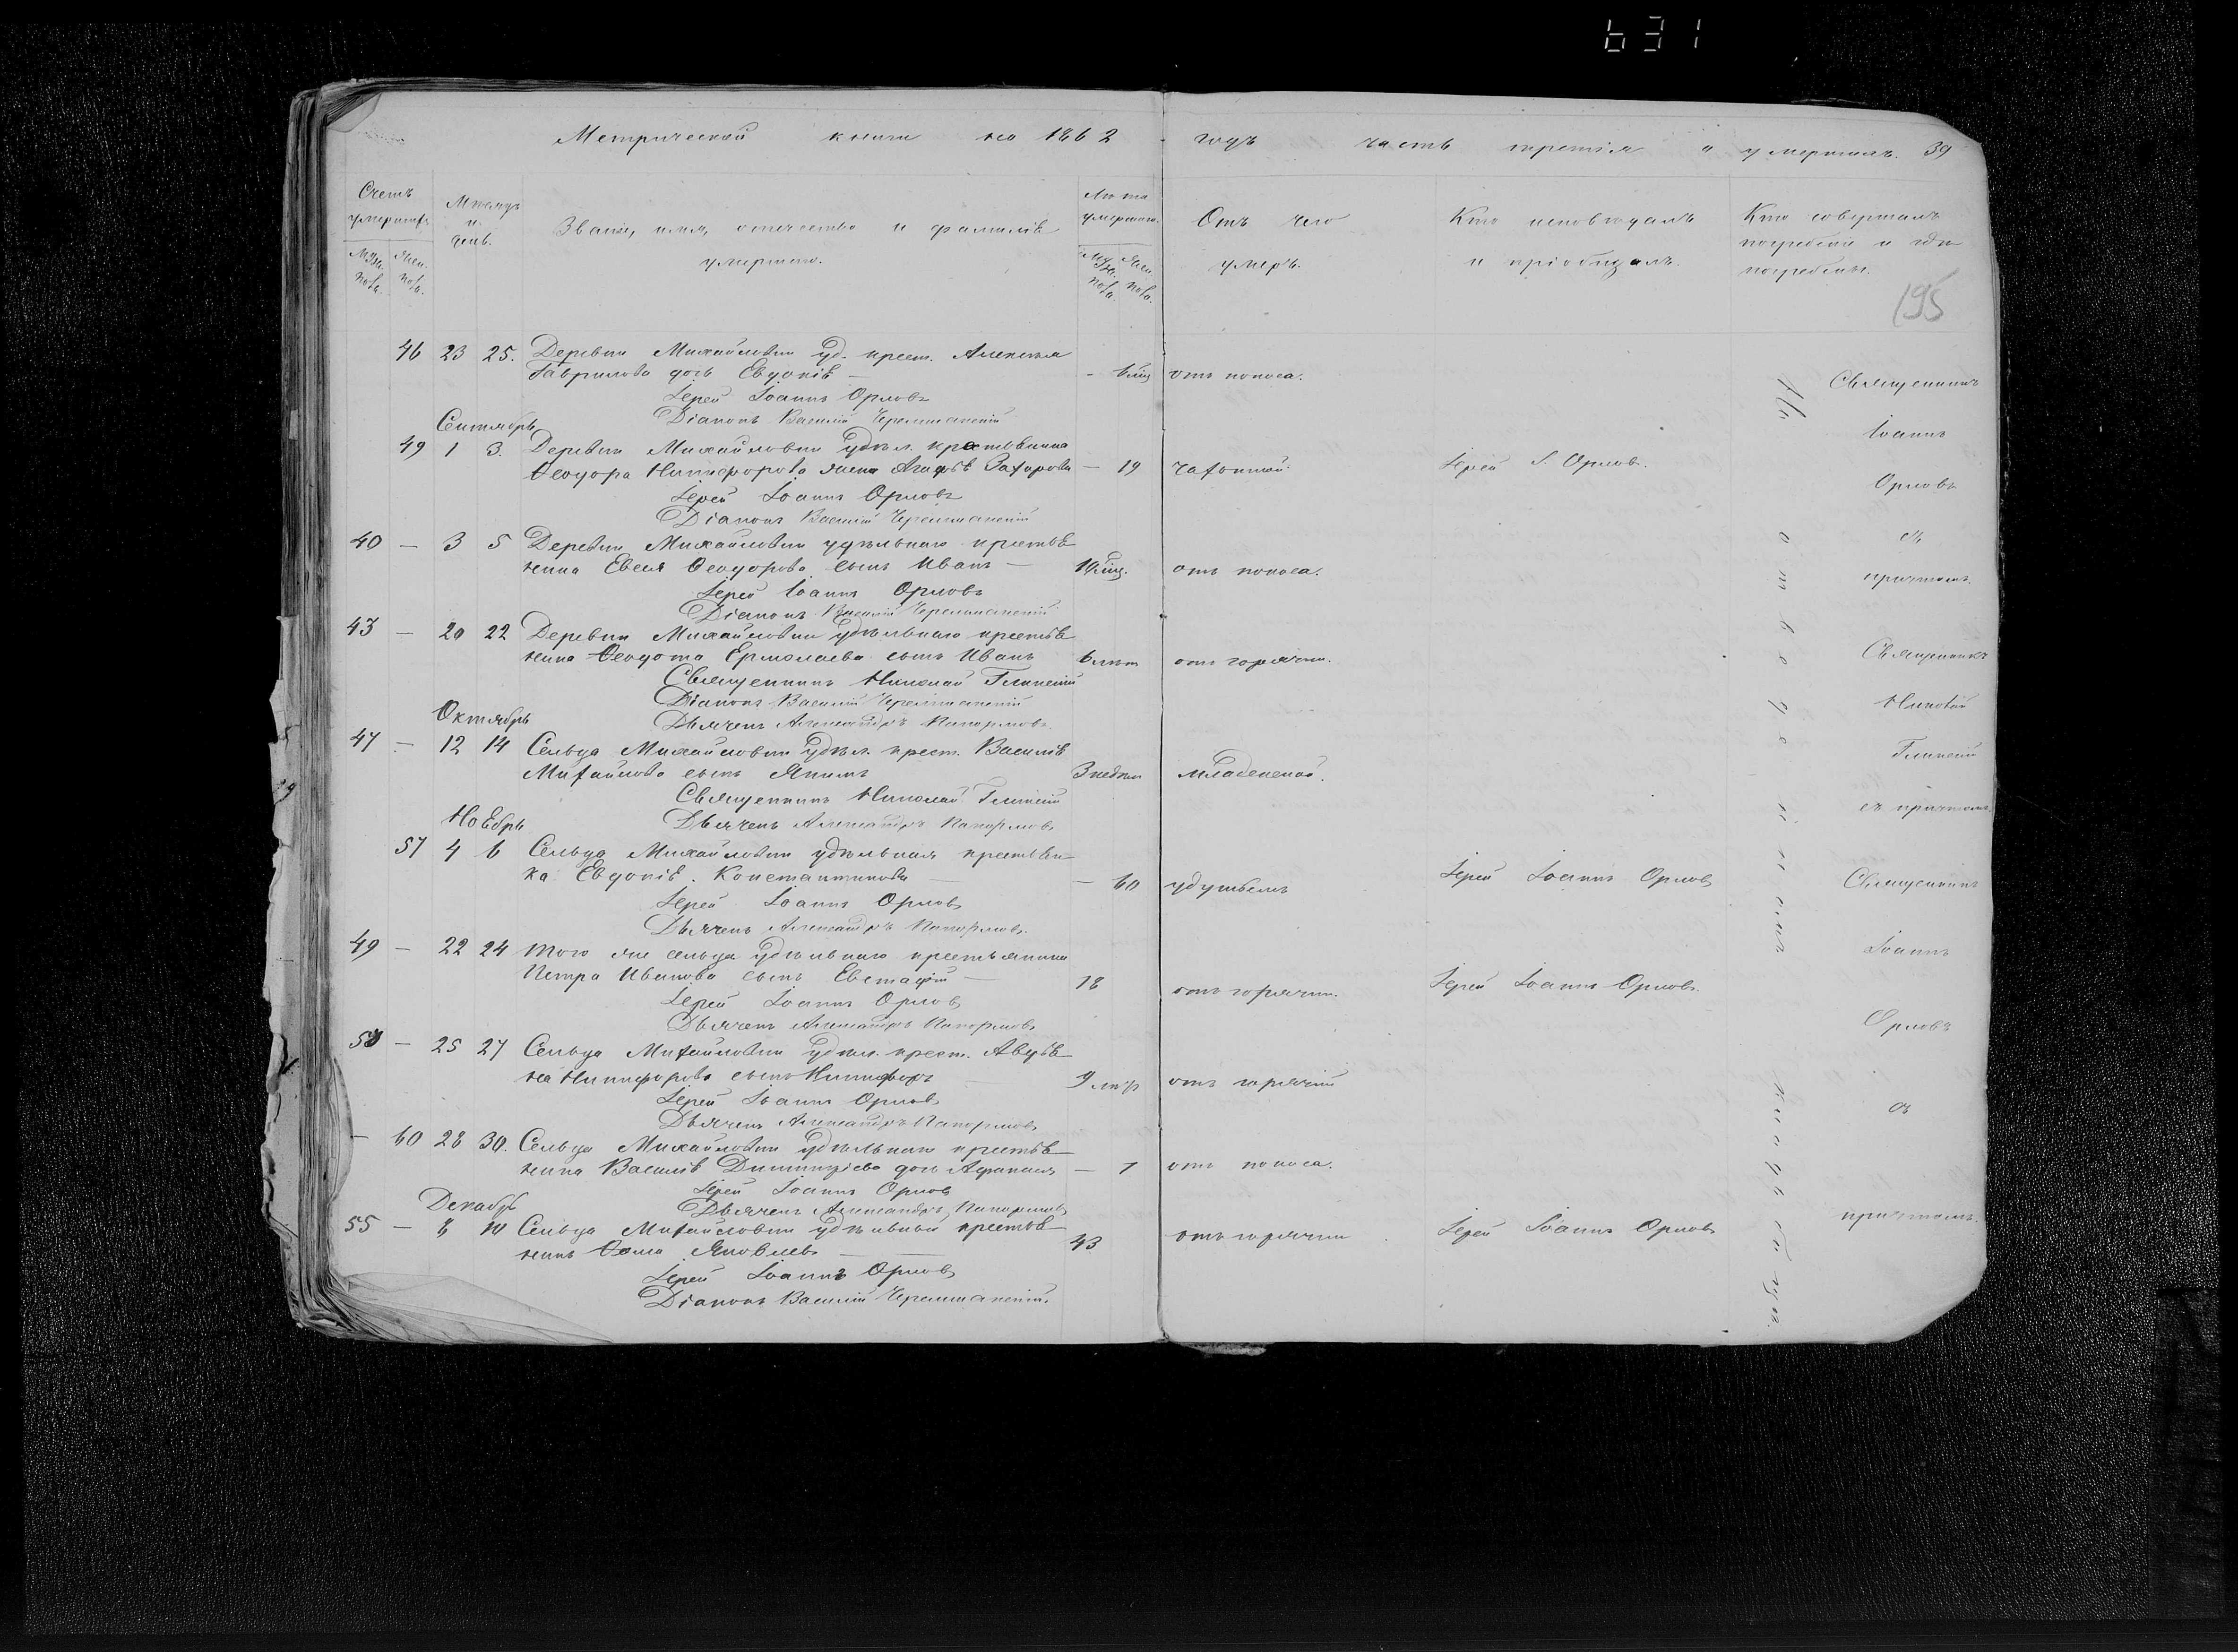 631
Метрической книги на 1862 годъ часть третія о умершихъ. 39
Счетъ умершихъ
Мѣсяцъ и день.
Званіе, имя, отечество и фамилія умершаго.
Лѣта умершаго.
Отъ чего умеръ.
Кто исповѣдалъ и пріобщалъ.
Кто совершалъ погребеніе и гдѣ погребены.
Муж. пола. Жен. пола.
Муж. пола. Жен. пола.
195
46 23 25. Деревни Михайловки уд. крест. Алексѣя
Гаврилова дочь Евдокія — - 6 мѣц отъ поноса.
Іерей Іоаннъ Орловъ
Діаконъ Василій Черемшанскій
Сентябрь
49 1 3. Деревни Михайловки удѣл. крестьянина
Ѳеодора Никифорова жена Агафья Захарова — 19 чахоткой. Іерей І. Орловъ.
Іерей Іоаннъ Орловъ
Діаконъ Василій Черемшанскій
40 — 3 5 Деревни Михайловки удѣльнаго крестья
нина Евсея Ѳеодорова сынъ Иванъ — 10 мѣц. отъ поноса.
Іерей Іоаннъ Орловъ
Діаконъ Василій Черемшанскій
43 — 20 22 Деревни Михайловки удѣльнаго крестья
нина Ѳеодота Ермолаева сынъ Иванъ 6 лѣт отъ горячки.
Священникъ Николай Глинскій
Діаконъ Василій Черемшанскій
Дьячекъ Александръ
Октябрь
47 — 12 14 Сельца Михайловки удѣл. крест. Василія
Михайлова сынъ Якимъ 3 недѣли младенской.
Священникъ Николай Глинскій
Дьячекъ Александръ
Ноябрь
57 4 6 Сельца Михайловки удѣльная крестьян
ка Евдокія Константинова — — 60 удушьемъ Іерей Іоаннъ Орловъ
Іерей Іоаннъ Орловъ
Дьячекъ Александръ
49 — 22 24 Того же сельца удѣльнаго крестьянина
Петра Иванова сынъ Евстафій — 18 отъ горячки. Іерей Іоаннъ Орловъ.
Іерей Іоаннъ Орловъ
Дьячекъ Александръ
50 — 25 27 Сельца Михайловки удѣл. крест. Авдѣя
Никифорова сынъ Никифоръ 9 отъ горячки
Іерей Іоаннъ Орловъ
Дьячекъ Александръ
— 60 28 30. Сельца Михайловки удѣльнаго крестья
нина Василія Димитріева дочь — 1 отъ поноса.
Іерей Іоаннъ Орловъ
Дьячекъ Александръ
Декабрь
55 — 8 10 Сельца Михайловки удѣльный крестья
нинъ Ѳома Яковлевъ — 43 отъ горячки Іерей Іоаннъ Орловъ
Іерей Іоаннъ Орловъ
Діаконъ Василій Черемшанскій.
На отводномъ кладбищѣ.
Священникъ
Іоаннъ
Орловъ
съ
причтомъ.
Священникъ
Николай
Глинскій
съ причтомъ
Священникъ
Іоаннъ
Орловъ
съ
причтомъ.